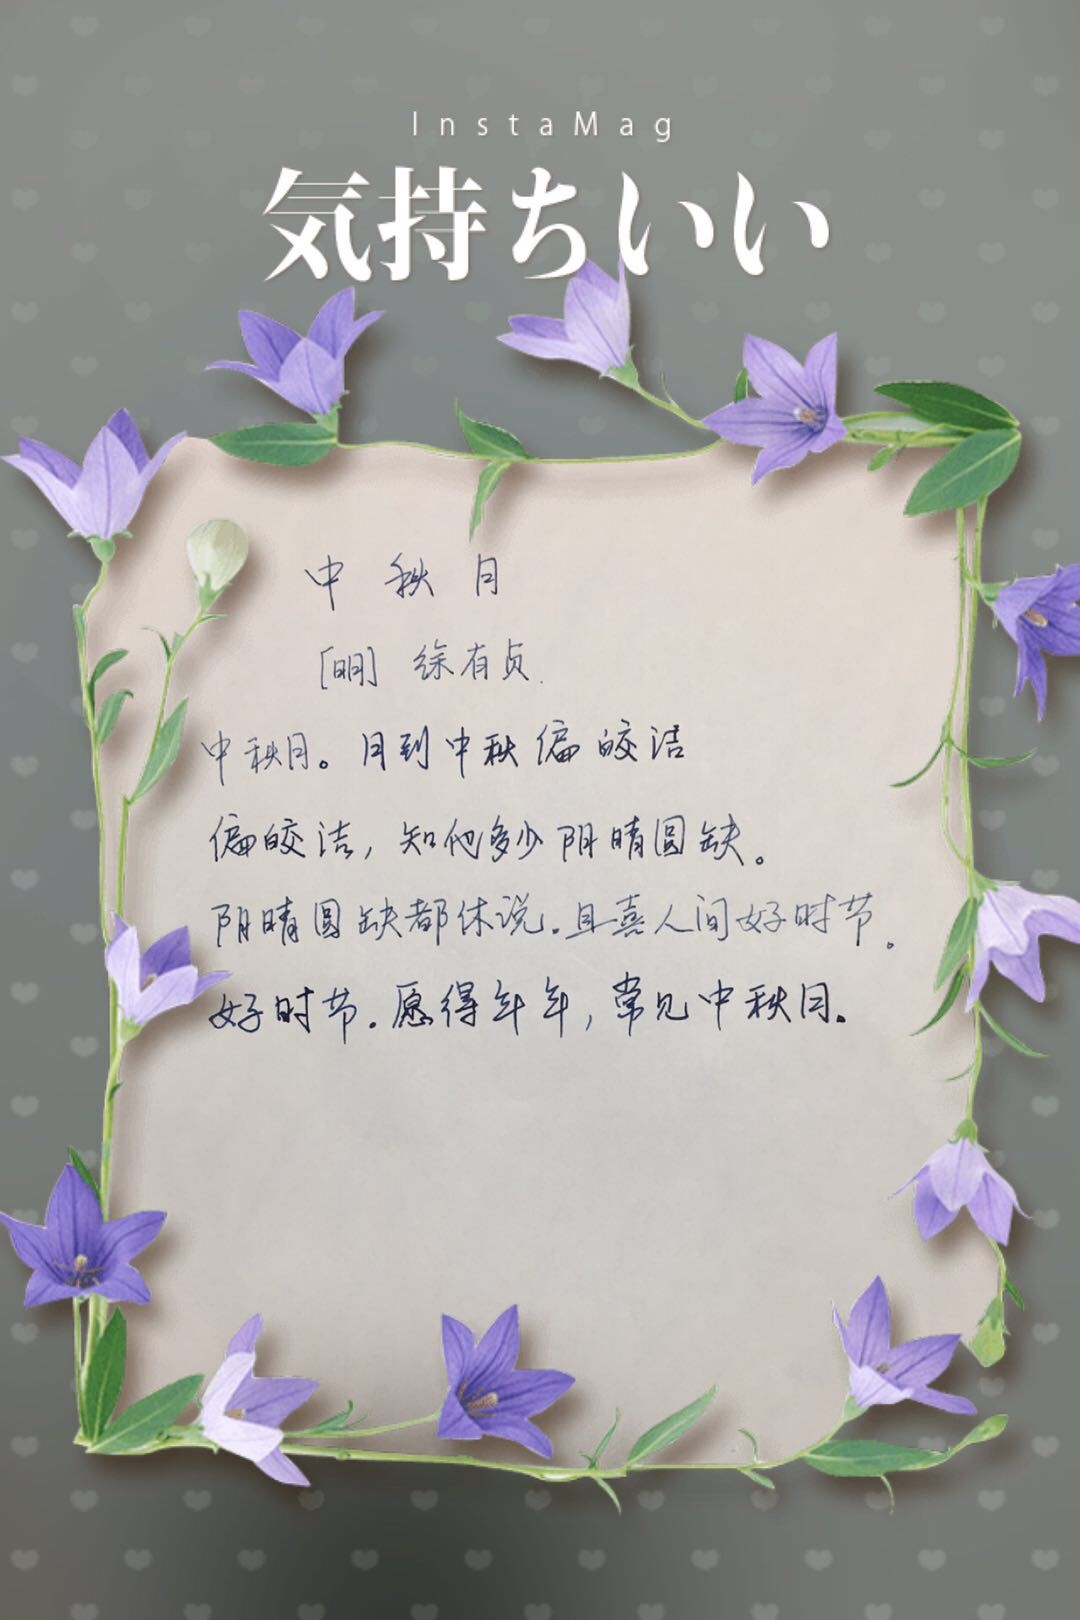 InstaMag
気持ちいい
中秋月
[明] 徐有贞.
中秋月。月到中秋偏皎洁
偏皎洁，知他多少阴晴圆缺。
阴晴圆缺都休说.且喜人间好时节。
好时节.愿得年年,常见中秋月.